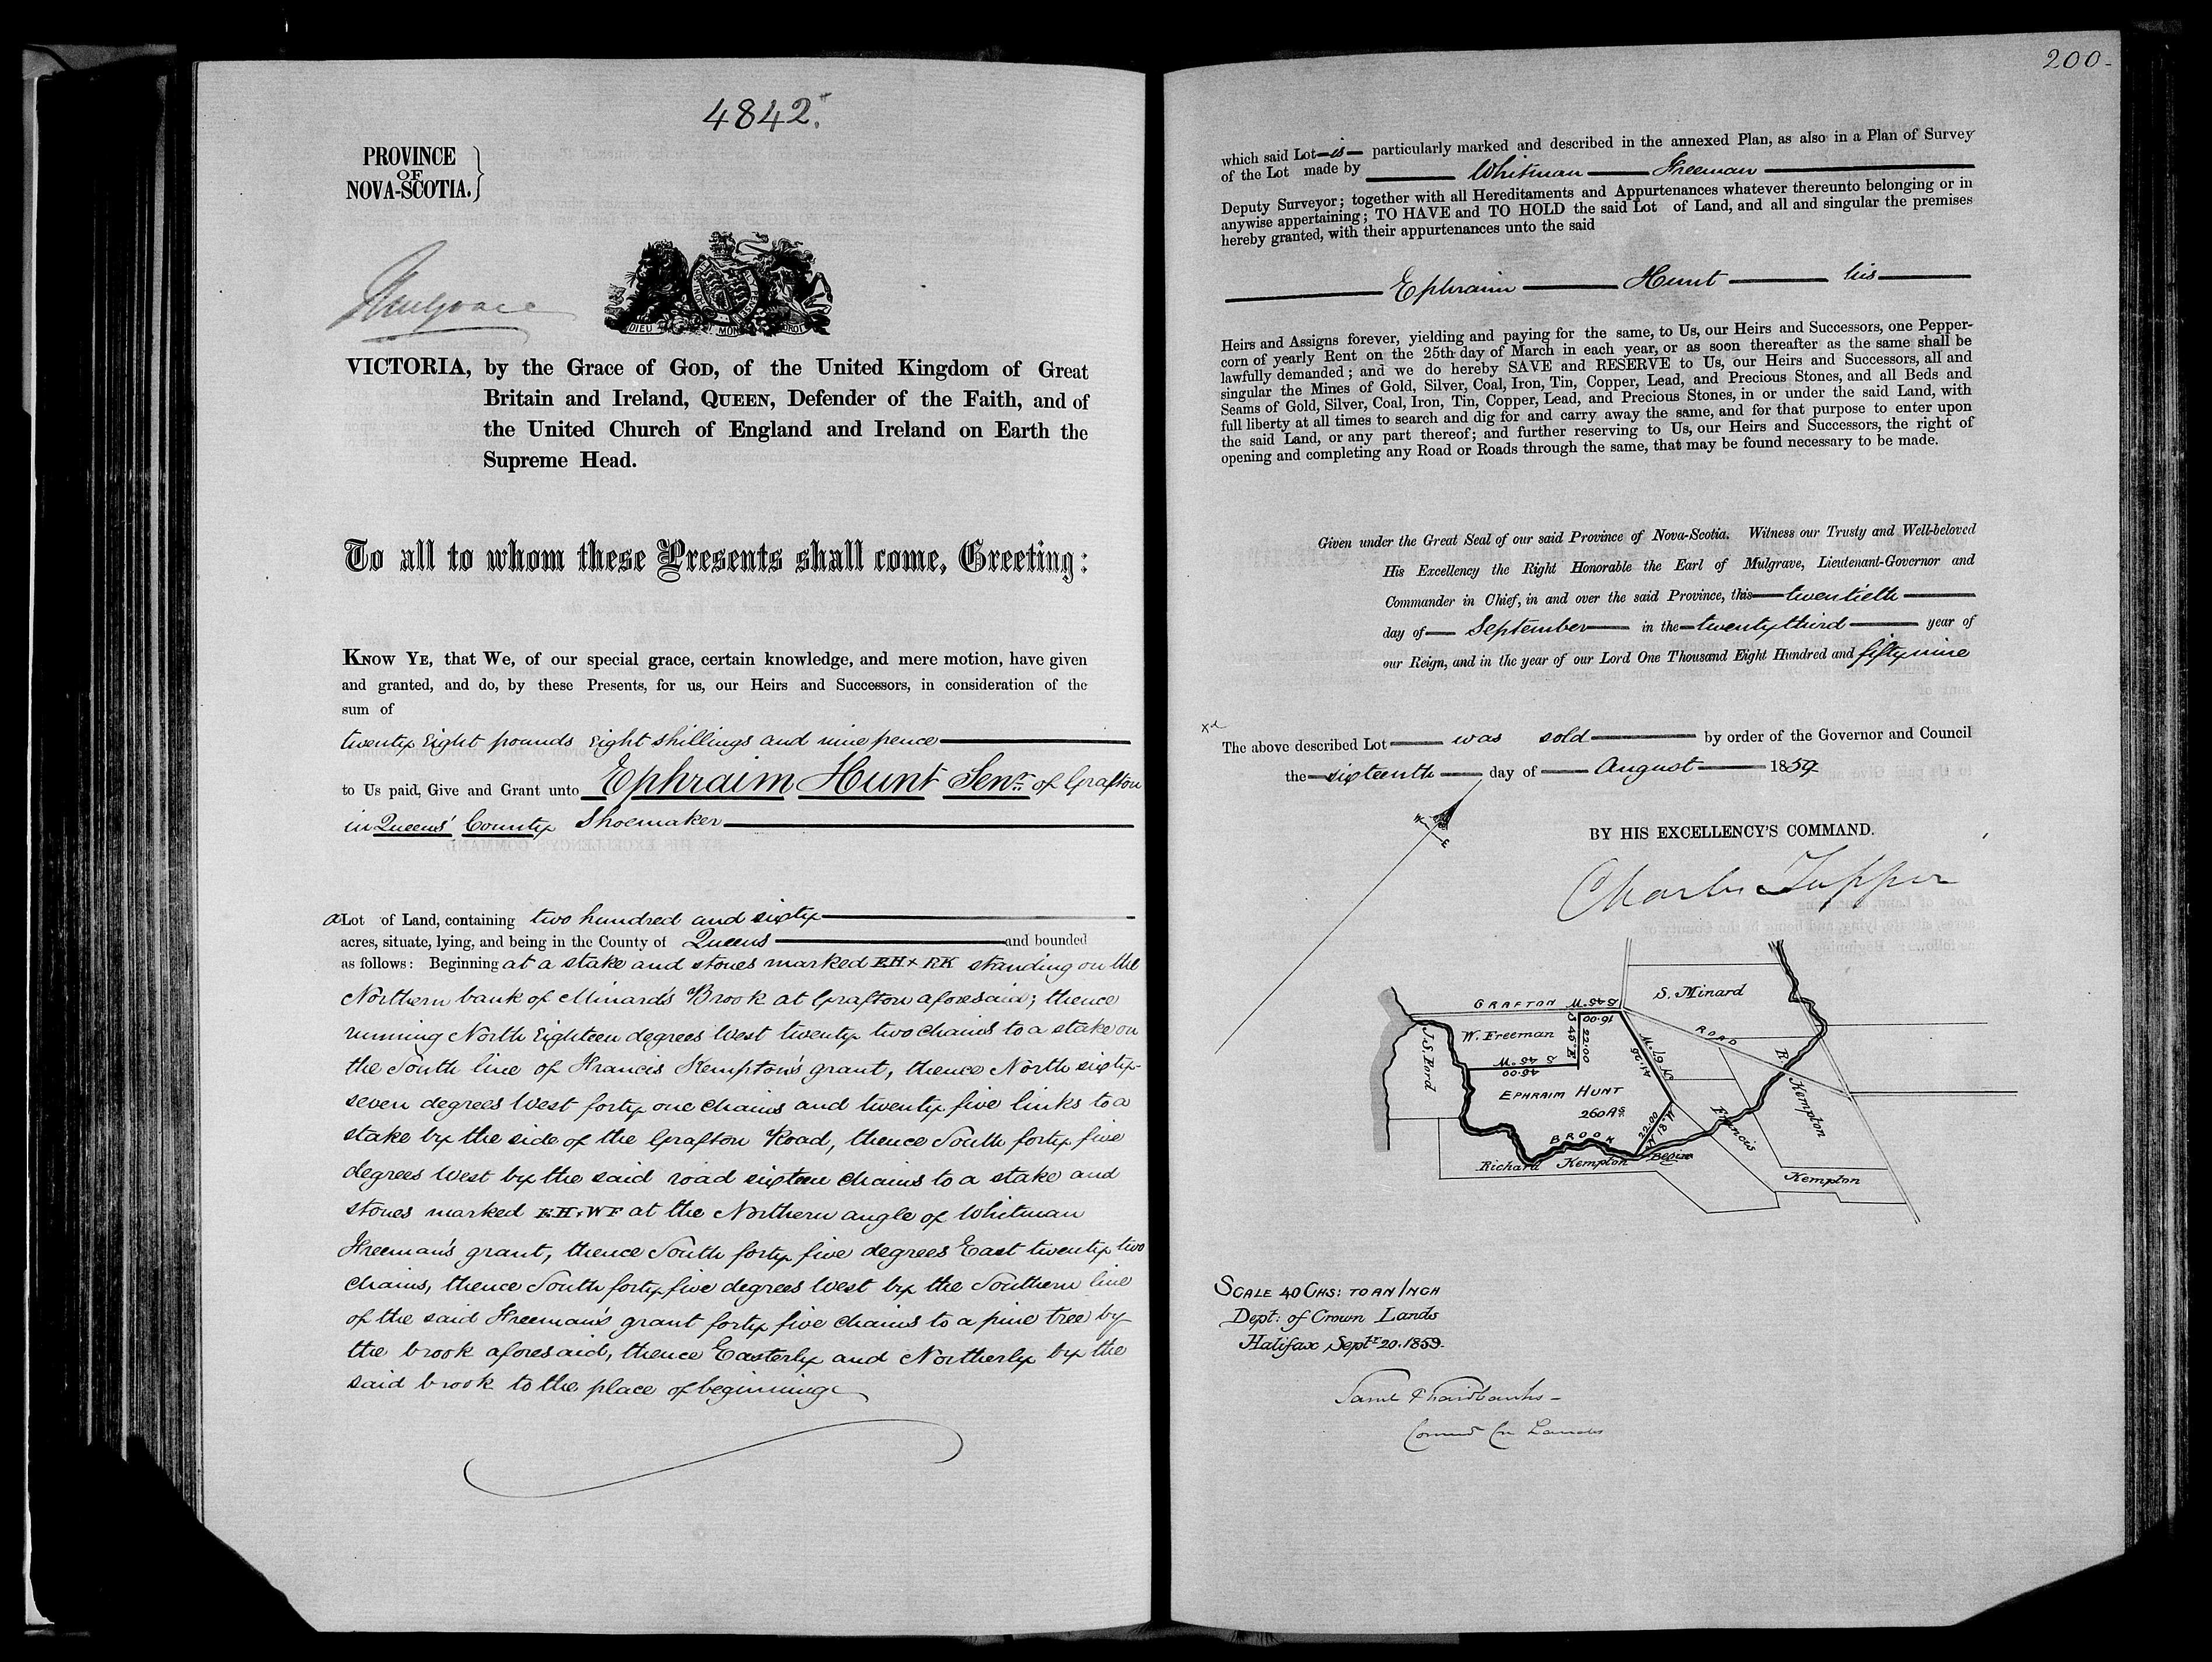 4842.
PROVINCE
OF
NOVA-SCOTIA.
Mulgrave
DIEU ET MON DROIT
VICTORIA, by the Grace of GOD, of the United Kingdom of Great
Britain and Ireland, QUEEN, Defender of the Faith, and of
the United Church of England and Ireland on Earth the
Supreme Head.
To all to whom these Presents shall come, Greeting:
KNOW YE, that We, of our special grace, certain knowledge, and mere motion, have given
and granted, and do, by these Presents, for us, our Heirs and Successors, in consideration of the
sum of
twenty Eight pounds Eight shillings and nine pence
to Us paid, Give and Grant unto Ephraim Hunt Senr. of Grafton
in Queens' County Shoemaker
a Lot of Land, containing two hundred and sixty
acres, situate, lying, and being in the County of Queens and bounded
as follows: Beginning at a stake and stones marked E.H + F.K standing on the
Northern bank of Minard's Brook at Grafton aforesaid; thence
running North Eighteen degrees West twenty two chains to a stake on
the South line of Francis Kempton's grant, thence North sixty-
seven degrees West forty one chains and twenty five links to a
stake by the side of the Grafton Road, thence South forty five
degrees West by the said road sixteen chains to a stake and
stones marked E.H + W F at the Northern angle of Whitman
Freeman's grant, thence South forty five degrees East twenty two
chains, thence South forty five degrees West by the Southern line
of the said Freeman's grant forty five chains to a pine tree by
the brook aforesaid, thence Easterly and Northerly by the
said brook to the place of beginning
200-
which said Lot is particularly marked and described in the annexed Plan, as also in a Plan of Survey
of the Lot made by Whitman Freeman
Deputy Surveyor; together with all Hereditaments and Appurtenances whatever thereunto belonging or in
anywise appertaining; TO HAVE and TO HOLD the said Lot of Land, and all and singular the premises
hereby granted, with their appurtenances unto the said
Ephraim Hunt his
Heirs and Assigns forever, yielding and paying for the same, to Us, our Heirs and Successors, one Pepper-
corn of yearly Rent on the 25th day of March in each year, or as soon thereafter as the same shall be
lawfully demanded; and we do hereby SAVE and RESERVE to Us, our Heirs and Successors, all and
singular the Mines of Gold, Silver, Coal, Iron, Tin, Copper, Lead, and Precious Stones, and all Beds and
Seams of Gold, Silver, Coal, Iron, Tin, Copper, Lead, and Precious Stones, in or under the said Land, with
full liberty at all times to search and dig for and carry away the same, and for that purpose to enter upon
the said Land, or any part thereof; and further reserving to Us, our Heirs and Successors, the right of
opening and completing any Road or Roads through the same, that may be found necessary to be made.
Given under the Great Seal of our said Province of Nova-Scotia. Witness our Trusty and Well-beloved
His Excellency the Right Honorable the Earl of Mulgrave, Lieutenant-Governor and
Commander in Chief, in and over the said Province, this twentieth
day of September in the twenty third year of
our Reign, and in the year of our Lord One Thousand Eight Hundred and fifty nine
The above described Lot was sold by order of the Governor and Council
the sixteenth day of August 1859
BY HIS EXCELLENCY'S COMMAND.
Charles Tupper
GRAFTON S 45° W
16.00
S. Minard
W. Freeman
S 45° E
22.00
ROAD
J.S. Ford
S 45 W
45.00
N 67 W
41.25
R. Kempton
EPHRAIM HUNT
260 As
22.00
N 18 W
Francis
BROOK
Begin
Richard Kempton
Kempton
SCALE 40 CHS: TO AN INCH
Dept: of Crown Lands
Halifax Septr 20. 1859.
Saml P Fairbanks
Commr Cn Lands